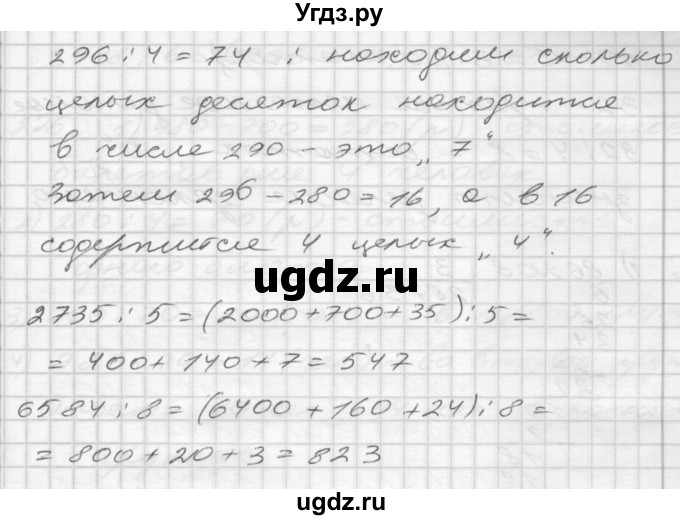 Угдз.ру
296 : 4 = 74 : находим сколько
целых десяток находится
в числе 290 - это „ 7 “
Затем 296 - 280 = 16, а в 16
содержится 4 целых „ 4 “.
ugdz.ru
2735 : 5 = (2000 + 700 + 35) : 5 =
= 400 + 140 + 7 = 547
6584 : 8 = (6400 + 160 + 24) : 8 =
= 800 + 20 + 3 = 823
ugdz.ru
ugdz.ru